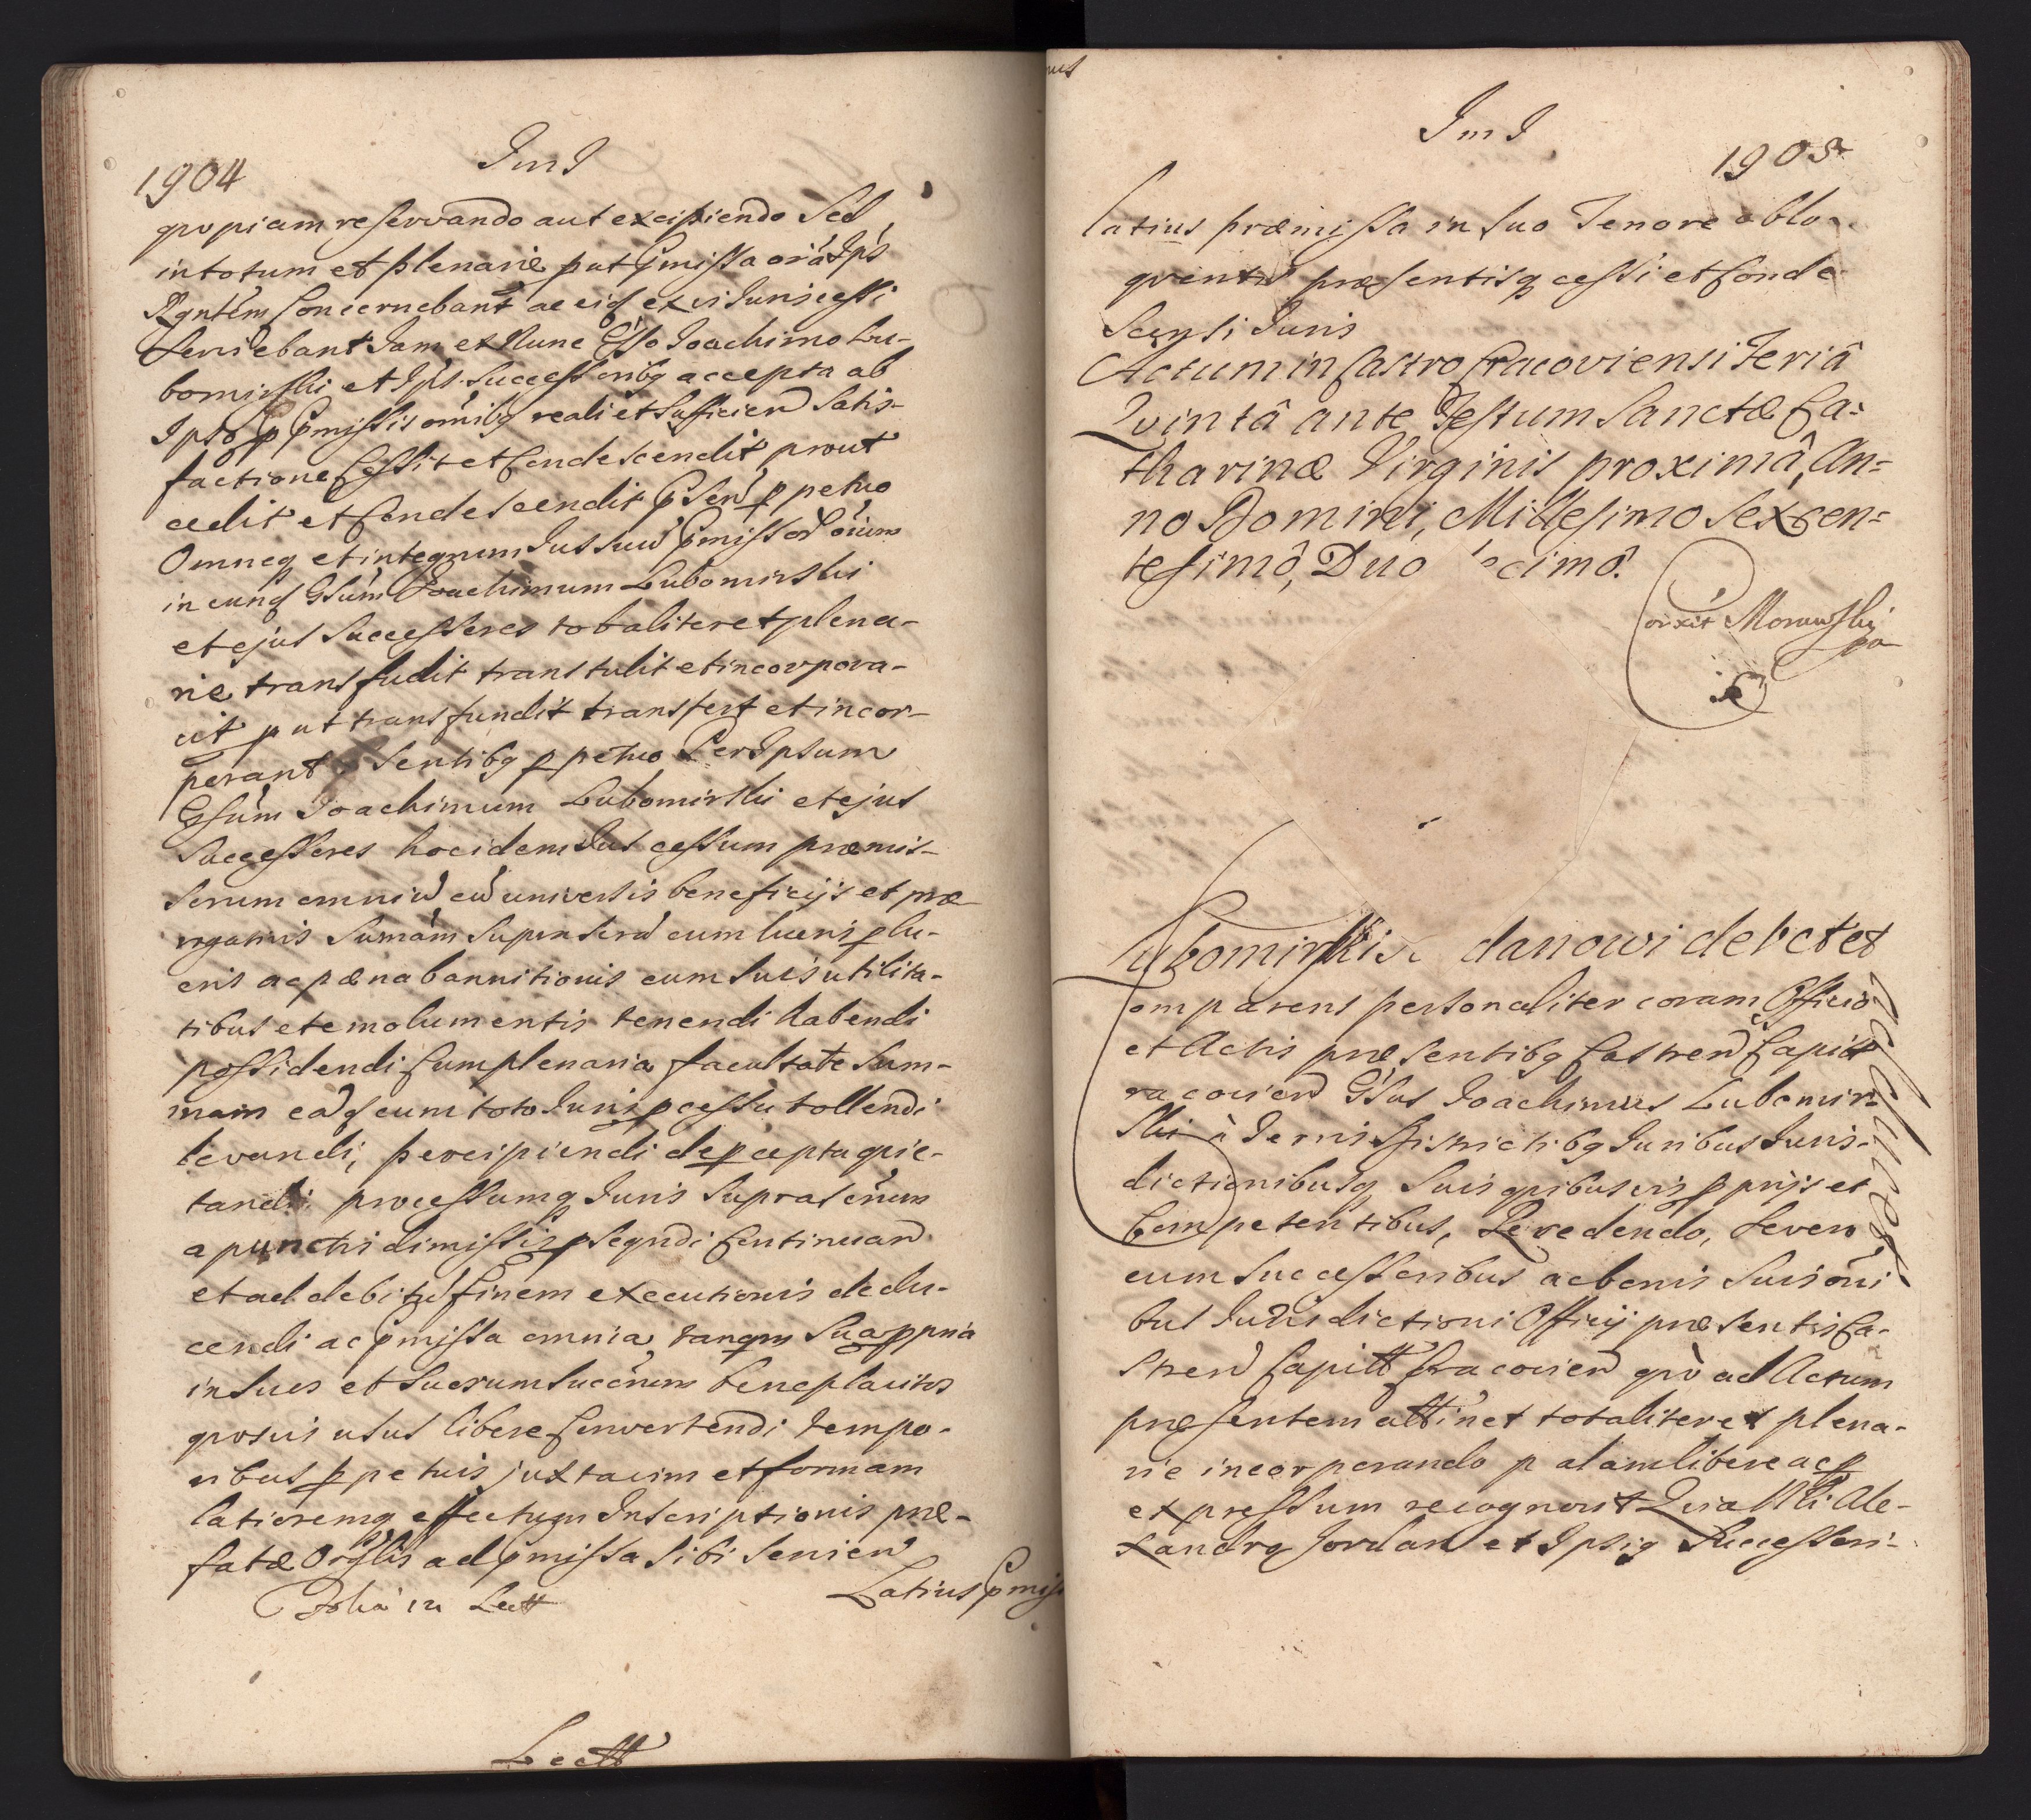 1904
Im I
qvopiam reservando aut excipiendo Sed
in totum et plenarie put pmissa oia Ips
Rgntem Concernebant ac eid ex vi Juris cessi
Serviebant Jam ex Nunc Gso Joachimo Lu-
bomirski et Ips Successoribq accepta ab
Ipso p pmissis omibq reali et Sufficien Satis-
factione Cessit et Condescendit prout
cedit et Condescendit pSen ppetuo
Omneq et integrum Jus suu pmissor oium
in eund Gsum Joachimum Lubomirski
et ejus Successores totaliter et plena-
rie transfudit transtulit et incorpora-
vit put transfundit transfert et incor-
porant Sentibq ppetuo Per Ipsum
Gsum Joachimum Lubomirski et ejus
Successores hoc idem Jus cessum præmis-
sorum omniu cu universis beneficijs et præ
rogativis Sumam Supra Scra cum lucris plu-
cris ac pæna bannitionis cum Suis utilita-
tibus et emolumentis tenendi habendi
possidendi Cum plenaria facultate Sum-
mam eadq cum toto Juris pcessu tollendi
levandi, percipiendi de pcepta qvie-
tandi processumq Juris Suprascrium
a punctis dimissis pseqndi Continuand
et ad debitu finem executionis dedu-
cendi ac pmissa omnia tanqm Sua ppria
in Suos et Suorum Succrum beneplacitos
qvosvis usus libere Convertendi tempo-
ribus ppetuis juxta vim et formam
latioremq effectum Inscriptionis præ-
fatæ Orglis ad pmissa Sibi Servien
Folia in Lectt
Latius pmis
Lectt
Im I
1905
latius præmissa in suo Tenore oblo-
qventis præsentisq cessi et Conde-
scensi Juris
Actum in Castro Cracoviensi Feriâ
Qvintâ ante Festum Sanctæ Ca-
tharinæ Virginis proximâ, An=
no Domini, Millesimo Sexcen=
tesimô, Duo cimô.
Corxit Morawski
Lubomirski danowi debet et
Comparens personaliter coram Officio
et Actis præsentibq Castren Capitt
racovien Gsus Joachimus Lubomir-
ski à Terris Districtibq Juribus Juris-
dictionibusq Suis qvibusvis pprijs et
Competentibus, Recedendo, Seven
cum Successoribus ac bonis Suis omi
bus Jurisdictioni Officij præsentis Ca-
stren Capitt Cracovien qvo ad Actum
præsentem attinet totaliter et plena-
rie incorporando palam libere ac p
expressum recognovit Qvia Mli Ale-
xandro Jordan et Ipsiq Successori-